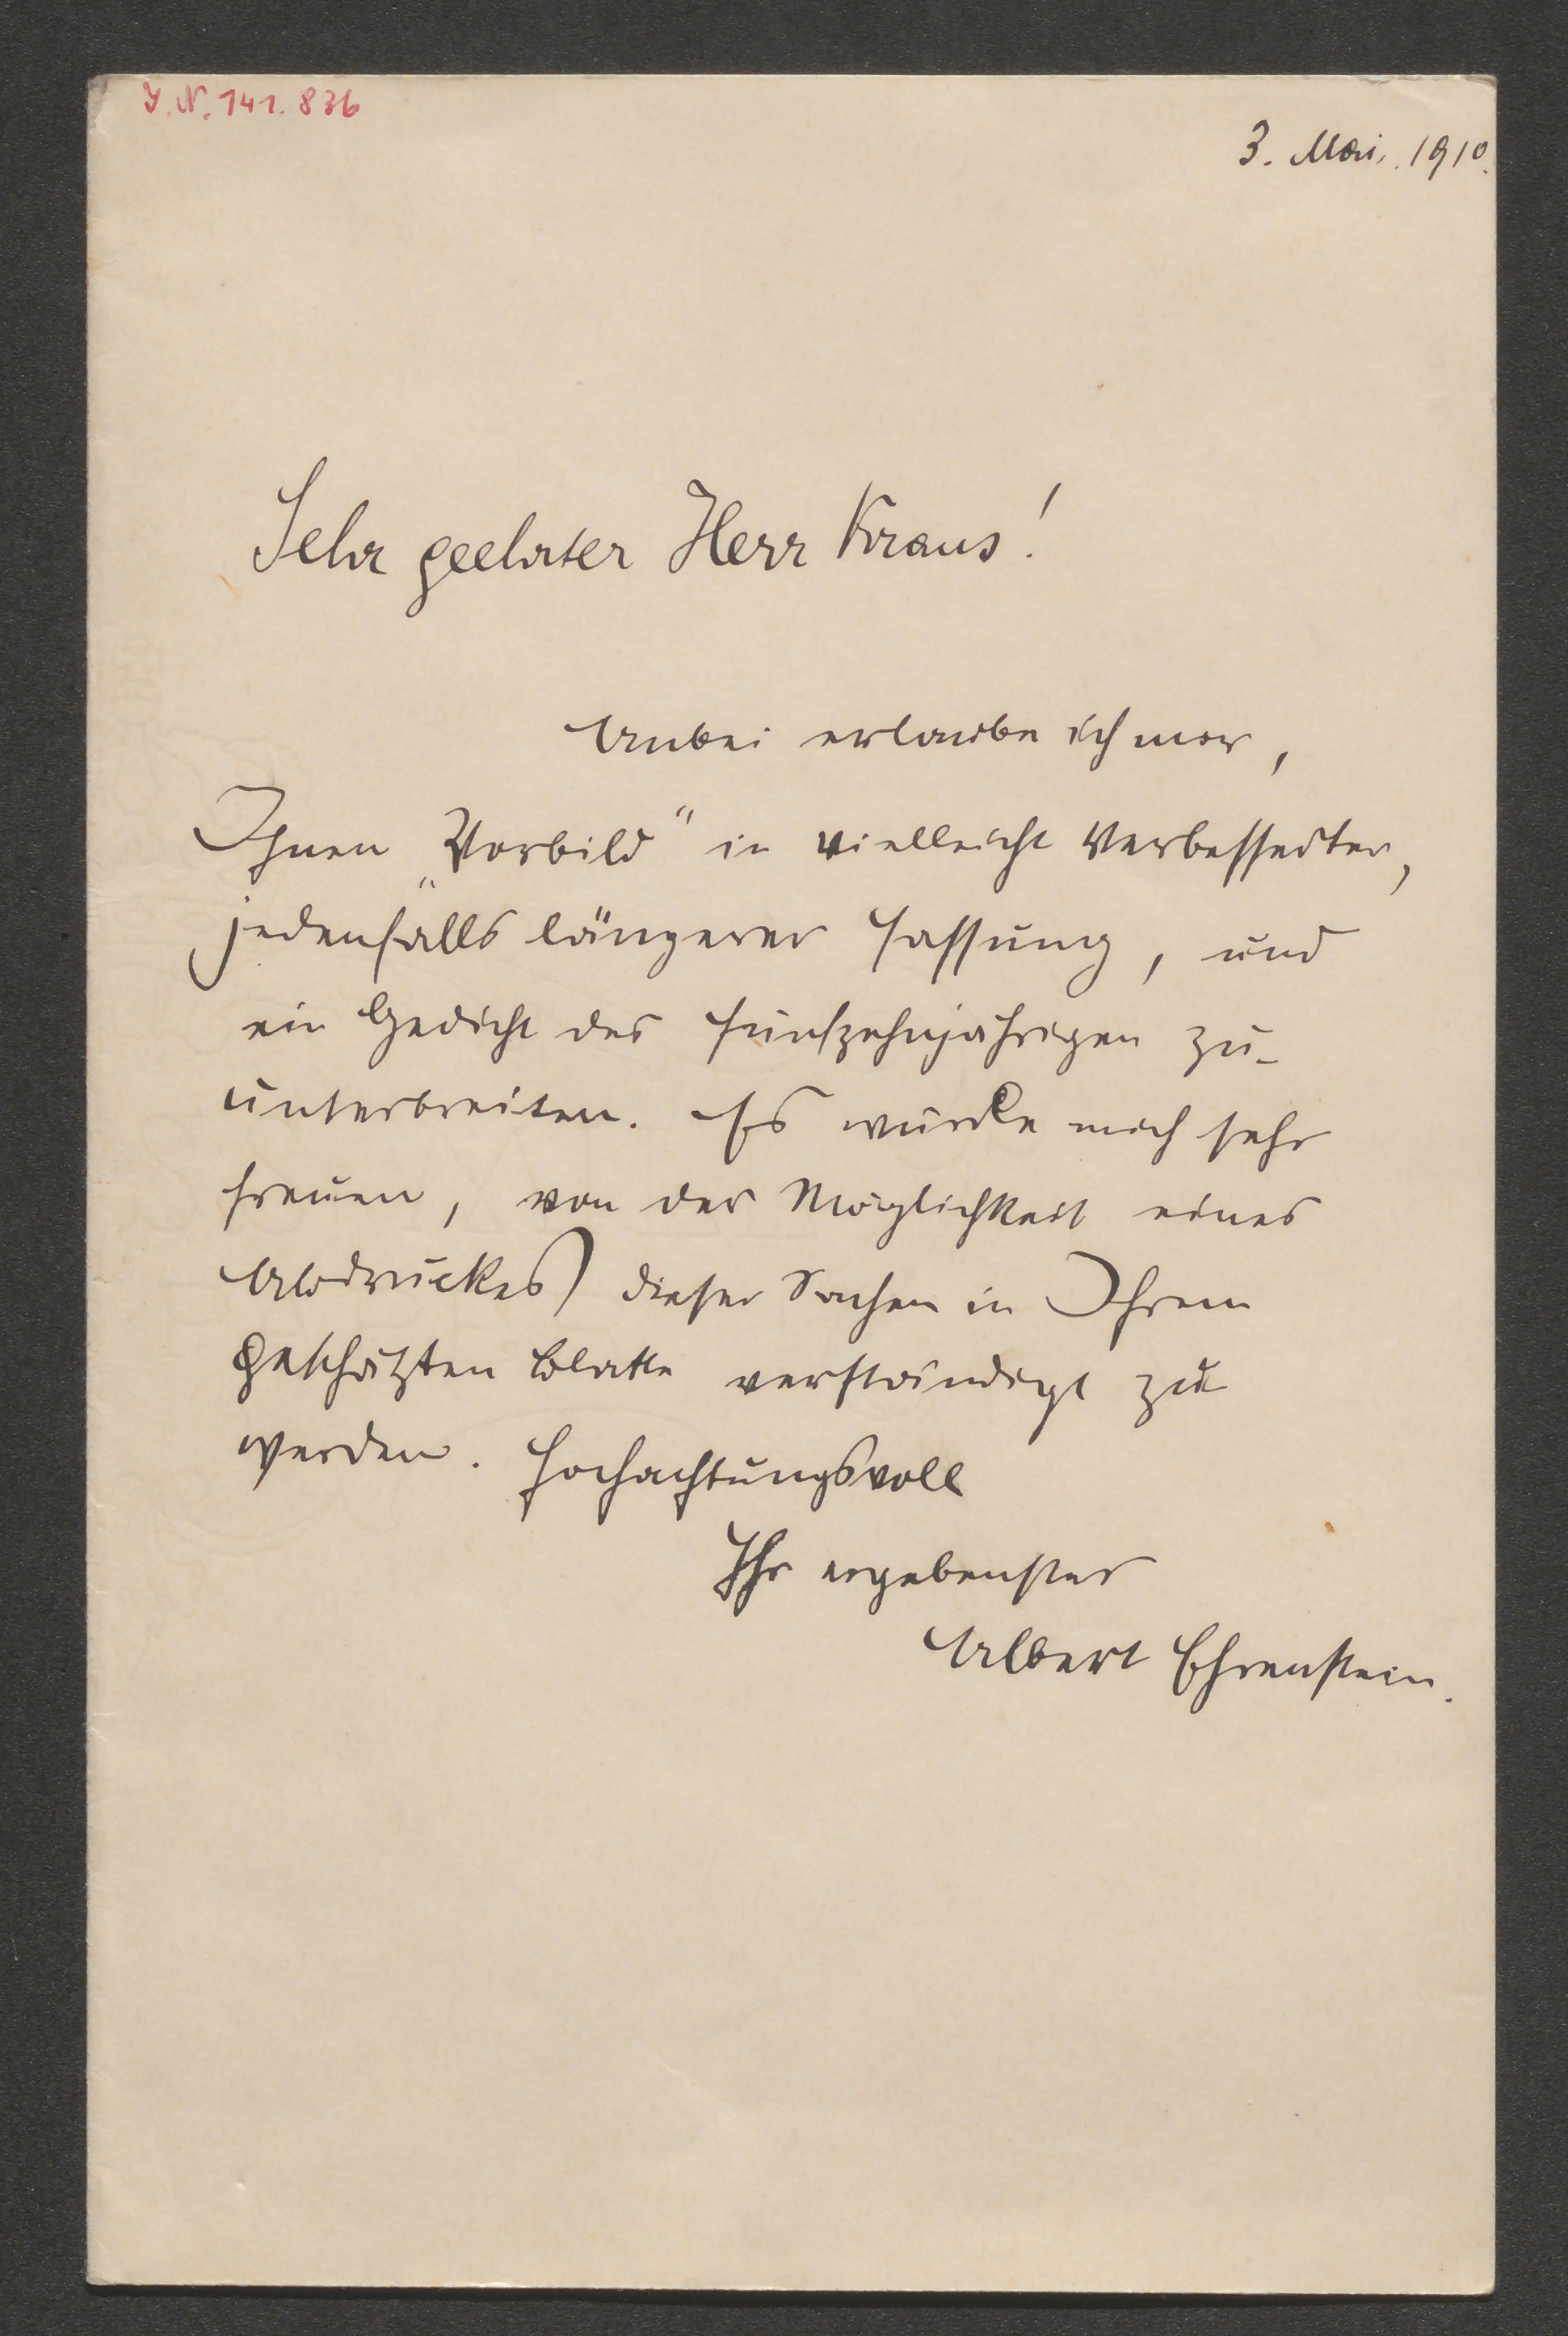 I.N. 141.836
3. Mai. 1910.
Sehr geehrter Herr Kraus!
Anbei erlaube ich mir,
Ihnen „Vorbild“ in vielleicht verbesserter,
jedenfalls längerer Fassung, und
ein Gedicht des Fünfzehnjährigen zu-
unterbreiten. Es würde mich sehr
freuen, von der Möglichkeit eines
Abdruckes dieser Sachen in Ihrem
geschätzten Blatte verständigt zu
werden. Hochachtungsvoll
Ihr ergebenster
Albert Ehrenstein.